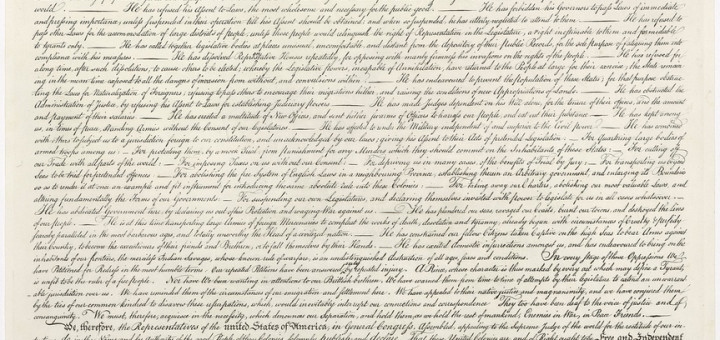 world. — He has refused his Assent to Laws, the most wholesome and necessary for the public good. — He has forbidden his Governors to pass Laws of immediate
and pressing importance, unless suspended in their operation till his Assent should be obtained; and when so suspended, he has utterly neglected to attend to them. — He has refused to
pass other Laws for the accommodation of large districts of people, unless those people would relinquish the right of Representation in the Legislature, a right inestimable to them and formidable
to tyrants only. — He has called together legislative bodies at places unusual, uncomfortable, and distant from the depository of their Public Records, for the sole purpose of fatiguing them into
compliance with his measures. — He has dissolved Representative Houses repeatedly, for opposing with manly firmness his invasions on the rights of the people. — He has refused for a
long time, after such dissolutions, to cause others to be elected; whereby the Legislative powers, incapable of Annihilation, have returned to the People at large for their exercise; the State remain-
ing in the mean time exposed to all the dangers of invasion from without, and convulsions within. — He has endeavoured to prevent the population of these States; for that purpose obstruc-
ting the Laws for Naturalization of Foreigners; refusing to pass others to encourage their migrations hither, and raising the conditions of new Appropriations of Lands. — He has obstructed the
Administration of Justice, by refusing his Assent to Laws for establishing Judiciary powers. — He has made Judges dependent on his Will alone, for the tenure of their offices, and the amount
and payment of their salaries. — He has erected a multitude of New Offices, and sent hither swarms of Officers to harrass our people, and eat out their substance. — He has kept among
us, in times of peace, Standing Armies without the Consent of our legislatures. — He has affected to render the Military independent of and superior to the Civil power. — He has combined
with others to subject us to a jurisdiction foreign to our constitution, and unacknowledged by our laws; giving his Assent to their Acts of pretended Legislation: — For quartering large bodies of
armed troops among us: — For protecting them, by a mock Trial, from punishment for any Murders which they should commit on the Inhabitants of these States: — For cutting off
our Trade with all parts of the world: — For imposing Taxes on us without our Consent: — For depriving us in many cases, of the benefits of Trial by Jury: — For transporting us beyond
Seas to be tried for pretended offences — For abolishing the free System of English Laws in a neighbouring Province, establishing therein an Arbitrary government, and enlarging its Boundaries
so as to render it at once an example and fit instrument for introducing the same absolute rule into these Colonies: — For taking away our Charters, abolishing our most valuable Laws, and
altering fundamentally the Forms of our Governments: — For suspending our own Legislatures, and declaring themselves invested with power to legislate for us in all cases whatsoever. —
He has abdicated Government here, by declaring us out of his Protection and waging War against us. — He has plundered our seas, ravaged our Coasts, burnt our towns, and destroyed the lives
of our people. — He is at this time transporting large Armies of foreign Mercenaries to compleat the works of death, desolation and tyranny, already begun with circumstances of Cruelty & perfidy
scarcely paralleled in the most barbarous ages, and totally unworthy the Head of a civilized nation. — He has constrained our fellow Citizens taken Captive on the high Seas to bear Arms against
their Country, to become the executioners of their friends and Brethren, or to fall themselves by their Hands. — He has excited domestic insurrections amongst us, and has endeavoured to bring on the
inhabitants of our frontiers, the merciless Indian Savages, whose known rule of warfare, is an undistinguished destruction of all ages, sexes and conditions. In every stage of these Oppressions We
have Petitioned for Redress in the most humble terms: Our repeated Petitions have been answered only by repeated injury. A Prince, whose character is thus marked by every act which may define a Tyrant,
is unfit to be the ruler of a free people. Nor have We been wanting in attentions to our Brittish brethren. We have warned them from time to time of attempts by their legislature to extend an unwarrant-
able jurisdiction over us. We have reminded them of the circumstances of our emigration and settlement here. We have appealed to their native justice and magnanimity, and we have conjured them
by the ties of our common kindred to disavow these usurpations, which, would inevitably interrupt our connections and correspondence. They too have been deaf to the voice of justice and of
consanguinity. We must, therefore, acquiesce in the necessity, which denounces our Separation, and hold them, as we hold the rest of mankind, Enemies in War, in Peace Friends. —
We, therefore, the Representatives of the united States of America, in General Congress, Assembled, appealing to the Supreme Judge of the world for the rectitude of our in-
Free and Independent